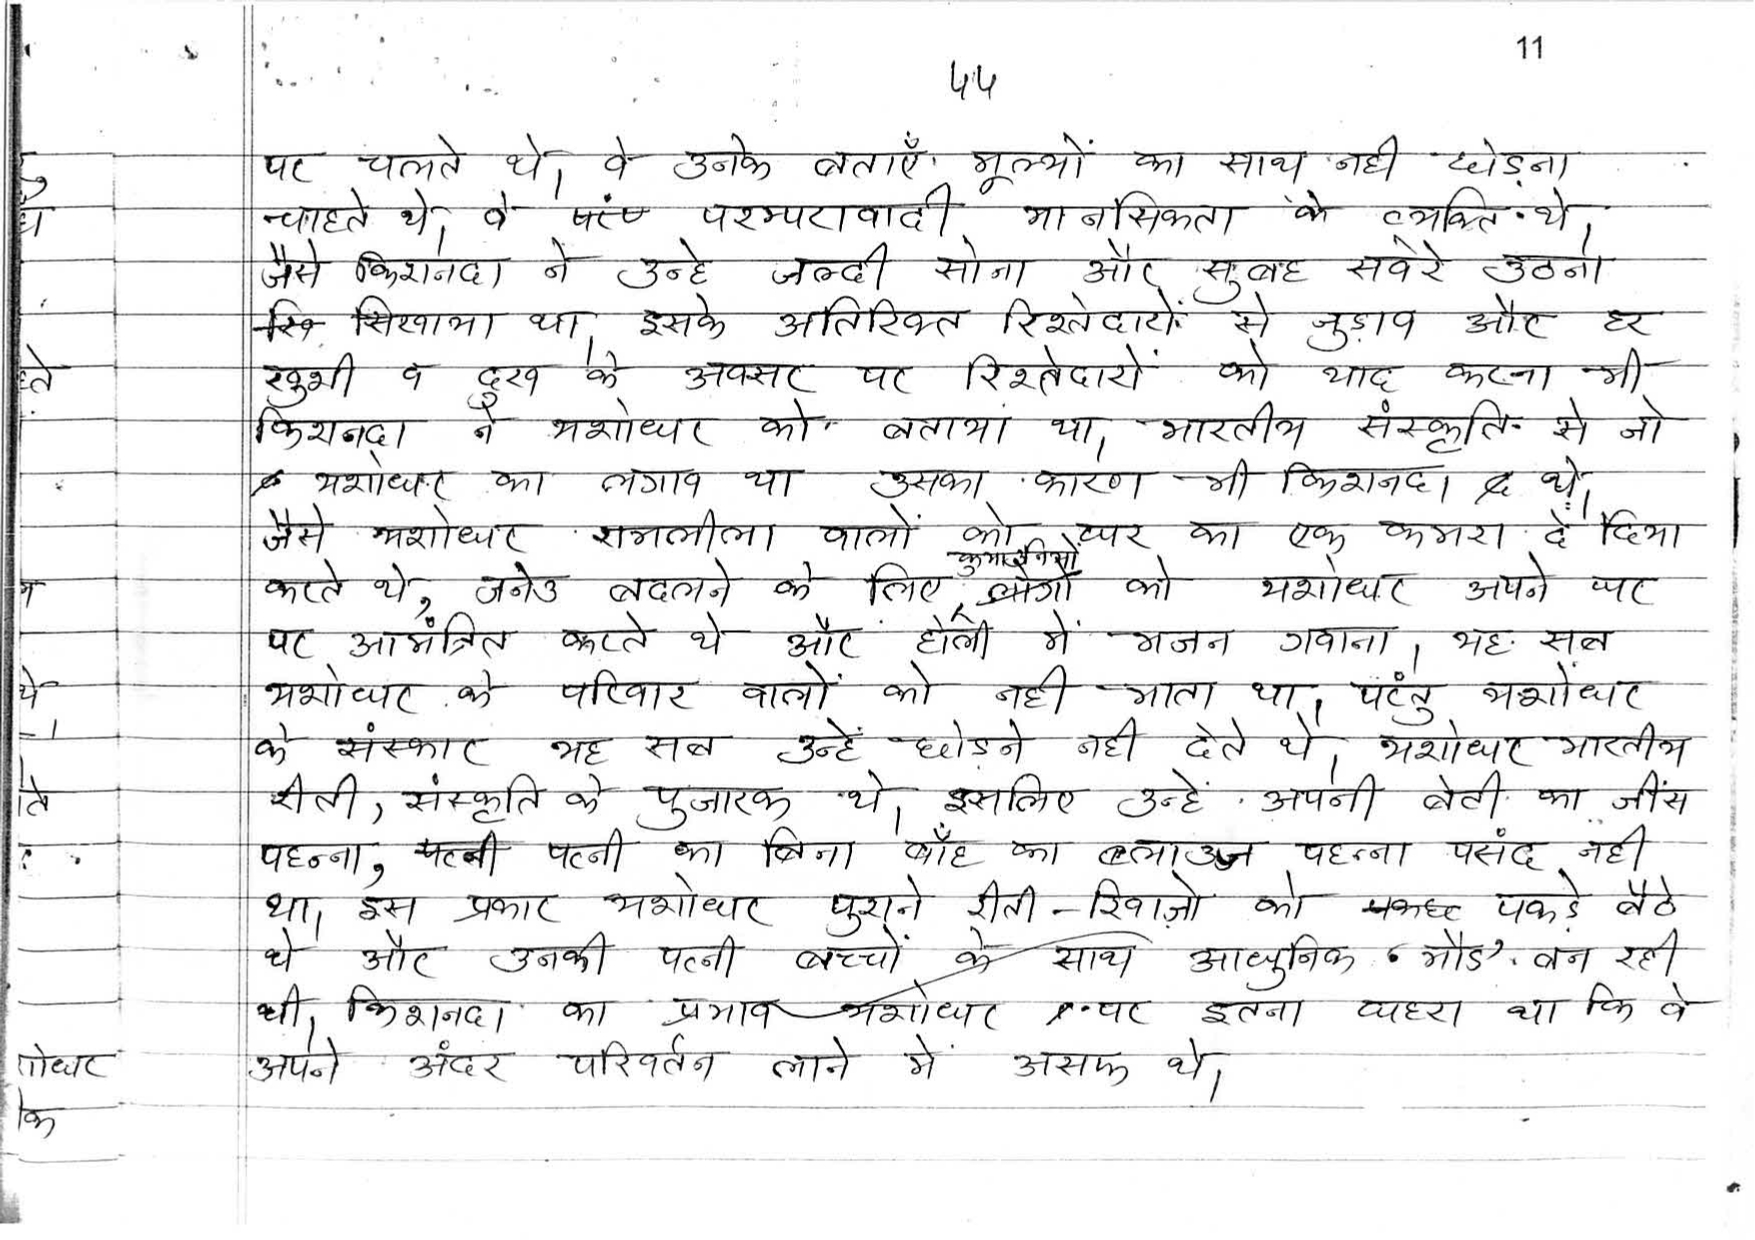 11
44
पर चलते थे। वे उनके बताएँ मूल्यों का साथ नही छोड़ना
चाहते थे। वे परम्परावादी मानसिकता के व्यक्ति थे।
जैसे किशनदा ने उन्हे जल्दी सोना और सुबह सवेरे उठना
सिखाया था। इसके अतिरिक्त रिश्तेदारों से जुड़ाव और हर
खुशी व दुख के अवसर पर रिश्तेदारों को याद करना भी
किशनदा ने यशोधर को बताया था। भारतीय संस्कृति से जो
यशोधर का लगाव था उसका कारण भी किशनदा थे।
जैसे यशोधर रामलीला वालों को घर का एक कमरा दे दिया
करते थे, जनेउ बदलने के लिए कुमाऊँनियों को यशोधर अपने घर
पर आमंत्रित करते थे और होली में भजन गवाना। यह सब
यशोधर के परिवार वालों को नही भाता था। परंतु यशोधर
के संस्कार यह सब उन्हें छोड़ने नही देते थे। यशोधर भारतीय
रीती, संस्कृति के पुजारक थे। इसलिए उन्हें अपनी बेटी का जींस
पहन्ना, पत्नी का बिना बाँह का ब्लाउज पहन्ना पसंद नही
था। इस प्रकार यशोधर पुराने रीती-रिवाज़ो को पकड़े बैठे
थे और उनकी पत्नी बच्चों के साथ आधुनिक 'मौड'. बन रही
थी। किशनदा का प्रभाव यशोधर पर इतना घहरा था कि वे
अपने अंदर परिवर्तन लाने में असफ थे।
ते
थे
ते
शोधर
कि